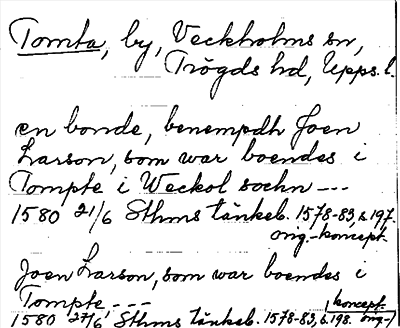 Tomta, by, Veckholms sn,
Trögds hd, Upps. l.
en bonde, benempdh Joen
Larson, som war boendes i
Tompte i Weckol sochn ---
1580 21/6 Sthms tänkeb. 1578-83, s. 197.
orig.-koncept.
Joen Larson, som war boendes i
Tompte, ---
koncept
1580 27/6, Sthms tänkeb. 1578-83, s. 198. orig.-)